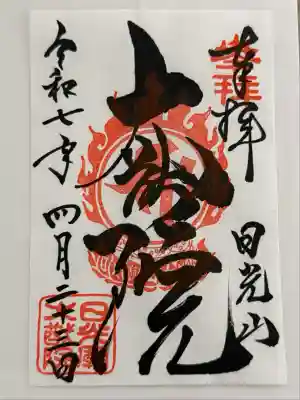 奉拝
日光山
大猷院
令和七年四月二十三日